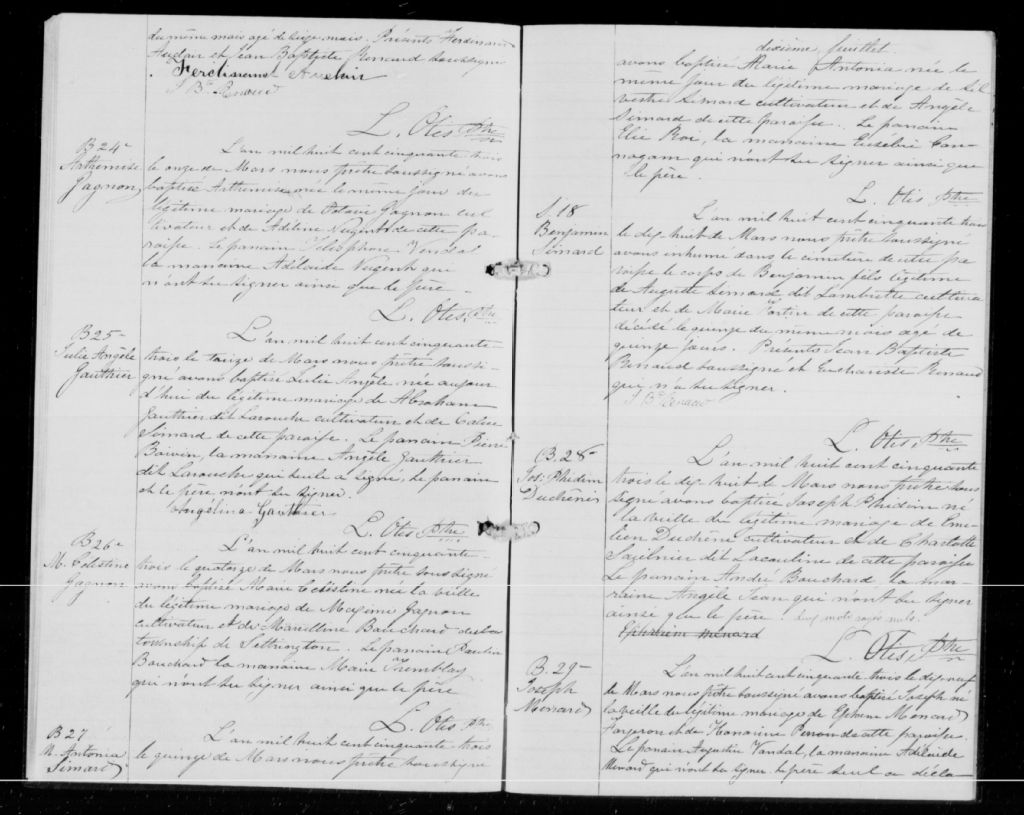 du même mois agé de seize mois. Présents Ferdinand
Auclair et Jean Baptiste Renaud soussignés
Ferdinand Auclair
J Bte Renaud
L. Otis Ptre
B 24
Arthémise
Gagnon
L'an mil huit cent cinquante trois
le onze de Mars nous prêtre soussigné avons
baptisé Arthémise née le même jour du
légitime mariage de Octave Gagnon cul
tivateur et de Adeline Nugent de cette pa-
roisse. Le parrain Télesphore Vandal
la marraine Adélaide Nugent qui
n'ont su signer ainsi que le père.
L. Otis, Ptre
B 25
Julie Angèle
Gauthier
L'an mil huit cent cinquante-
trois le treize de Mars nous prêtre soussi-
gné avons baptisé Julie Angèle née aujour
d'hui du légitime mariage de Abraham
Gauthier dit Larouche cultivateur et de
Simard de cette paroisse. Le parrain Pierre
Boivin, la marraine Angèle Gauthier
dit Larouche qui seule a signé, le parrain
et le père n'ont su signer.
Angélina Gauthier
L. Otis Ptre
B 26
M. Célestine
Gagnon
L'an mil huit cent cinquante-
trois le quatorze de Mars nous prêtre soussigné
avons baptisé Marie Célestine née la veille
du légitime mariage de Maxime Gagnon
cultivateur et de Marcelline Bouchard du
township de Settrington. Le parrain
Bouchard la marraine Marie Tremblay
qui n'ont su signer ainsi que le père
L. Otis. Ptre
B 27
M. Antonia
Simard
L'an mil huit cent cinquante trois
le quinze de Mars nous prêtre soussigné
dixième feuillet
avons baptisé Marie Antonia née le
même jour du légitime mariage de Sil
vestre Simard cultivateur et de Angèle
Simard de cette paroisse. Le parrain
Elie Roi, la marraine Eusébie
qui n'ont su signer ainsi que
le père.
L. Otis Ptre
S. 18
Benjamin
Simard
L'an mil huit cent cinquante trois
le dix huit de Mars nous prêtre soussigné
avons enhumé dans le cimetière de cette pa
roisse le corps de Benjamin fils légitime
de Auguste Simard dit Lambrette cultiva
teur et de Marie Fortin de cette paroisse
décédé le quinze du même mois agé de
quinze jours. Présents Jean Baptiste
Renaud soussigné et Renaud
qui n'a su signer.
J Bte Renaud
L. Otis, Ptre
B. 28
Jos. Phidim
Duchêne
L'an mil huit cent cinquante
trois le dix huit de Mars nous prêtre sous
signé avons baptisé Joseph Phidim né
la veille du légitime mariage de Eme
lien Duchêne cultivateur et de Charlotte
dit Lacouline de cette paroisse
Le parrain André Bouchard la mar-
raine Angèle Jean qui n'ont su signer
ainsi que le père. deux mots rayés nuls.
Ephrem Ménard
L. Otis, Ptre
B. 29
Joseph
Menard
L'an mil huit cent cinquante trois le dix neuf
de Mars nous prêtre soussigné avons baptisé Joseph né
la veille du légitime mariage de Ephrem Menard
forgeron et de Honorine Perron de cette paroisse.
Le parrain Augustin Vandal, la marraine Adélaide
Menard qui n'ont su signer. le père seul a décla-